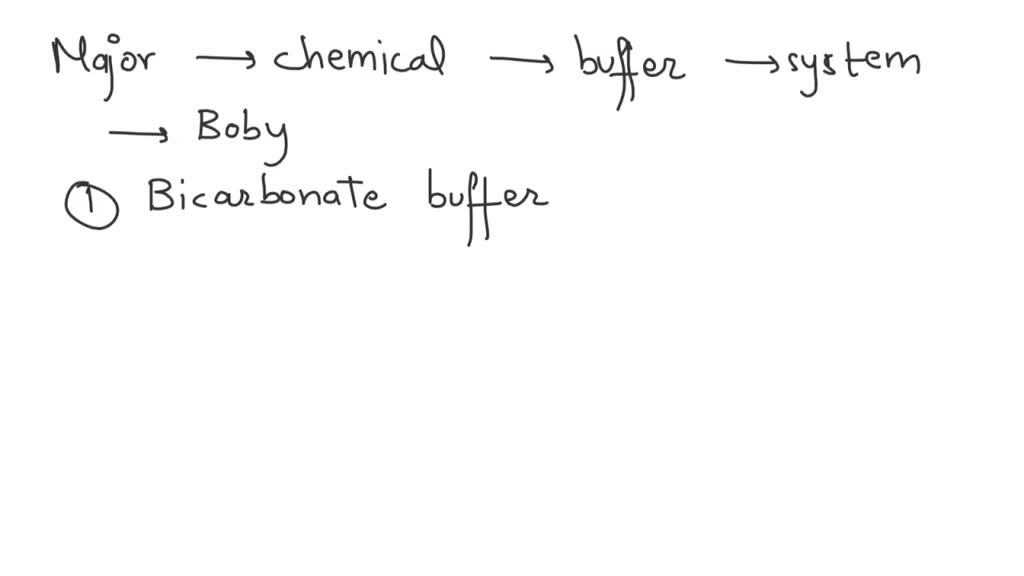 Major → chemical → buffer → system
→ Boby
① Bicarbonate buffer